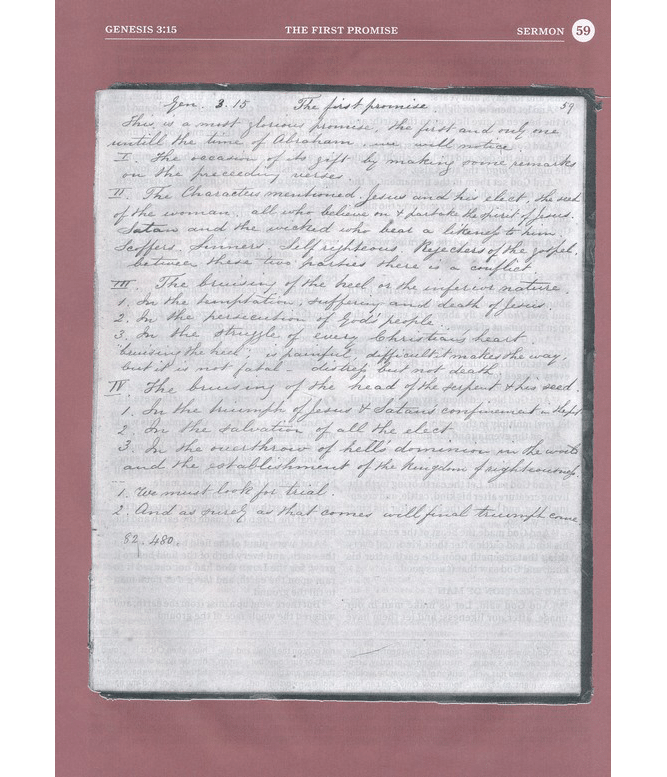 GENESIS 3:15 THE FIRST PROMISE SERMON 59
Gen. 3. 15 The first promise 59
This is a most glorious promise, the first and only one
untill the time of Abraham. we will notice.
I. The occasion of its gift by making some remarks
on the preceeding verses
II. The Characters mentioned. Jesus and his elect, the seed
of the woman. all who believe on & partake the spirit of Jesus.
Satan and the wicked who bear a likeness to him
Scoffers. Sinners. Self righteous. Rejecters of the gospel,
between these two parties there is a conflict.
III. The bruising of the heel, or the inferior nature.
1. In the temptation, suffering and death of Jesus.
2. In the persecution of God's people
3. In the struggle of every Christian's heart.
bruising the heel; is painful, difficult, it makes the way,
but it is not fatal – distress but not death.
IV. The bruising of the head of the serpent & his seed.
1. In the triumph of Jesus & Satan's confinement in the pit
2. In the salvation of all the elect.
3. In the overthrow of hell's dominion in the world
and the establishment of the Kingdom of righteousness.
1. We must look for trial.
2. And as surely as that comes will final triumph come
82. 480.